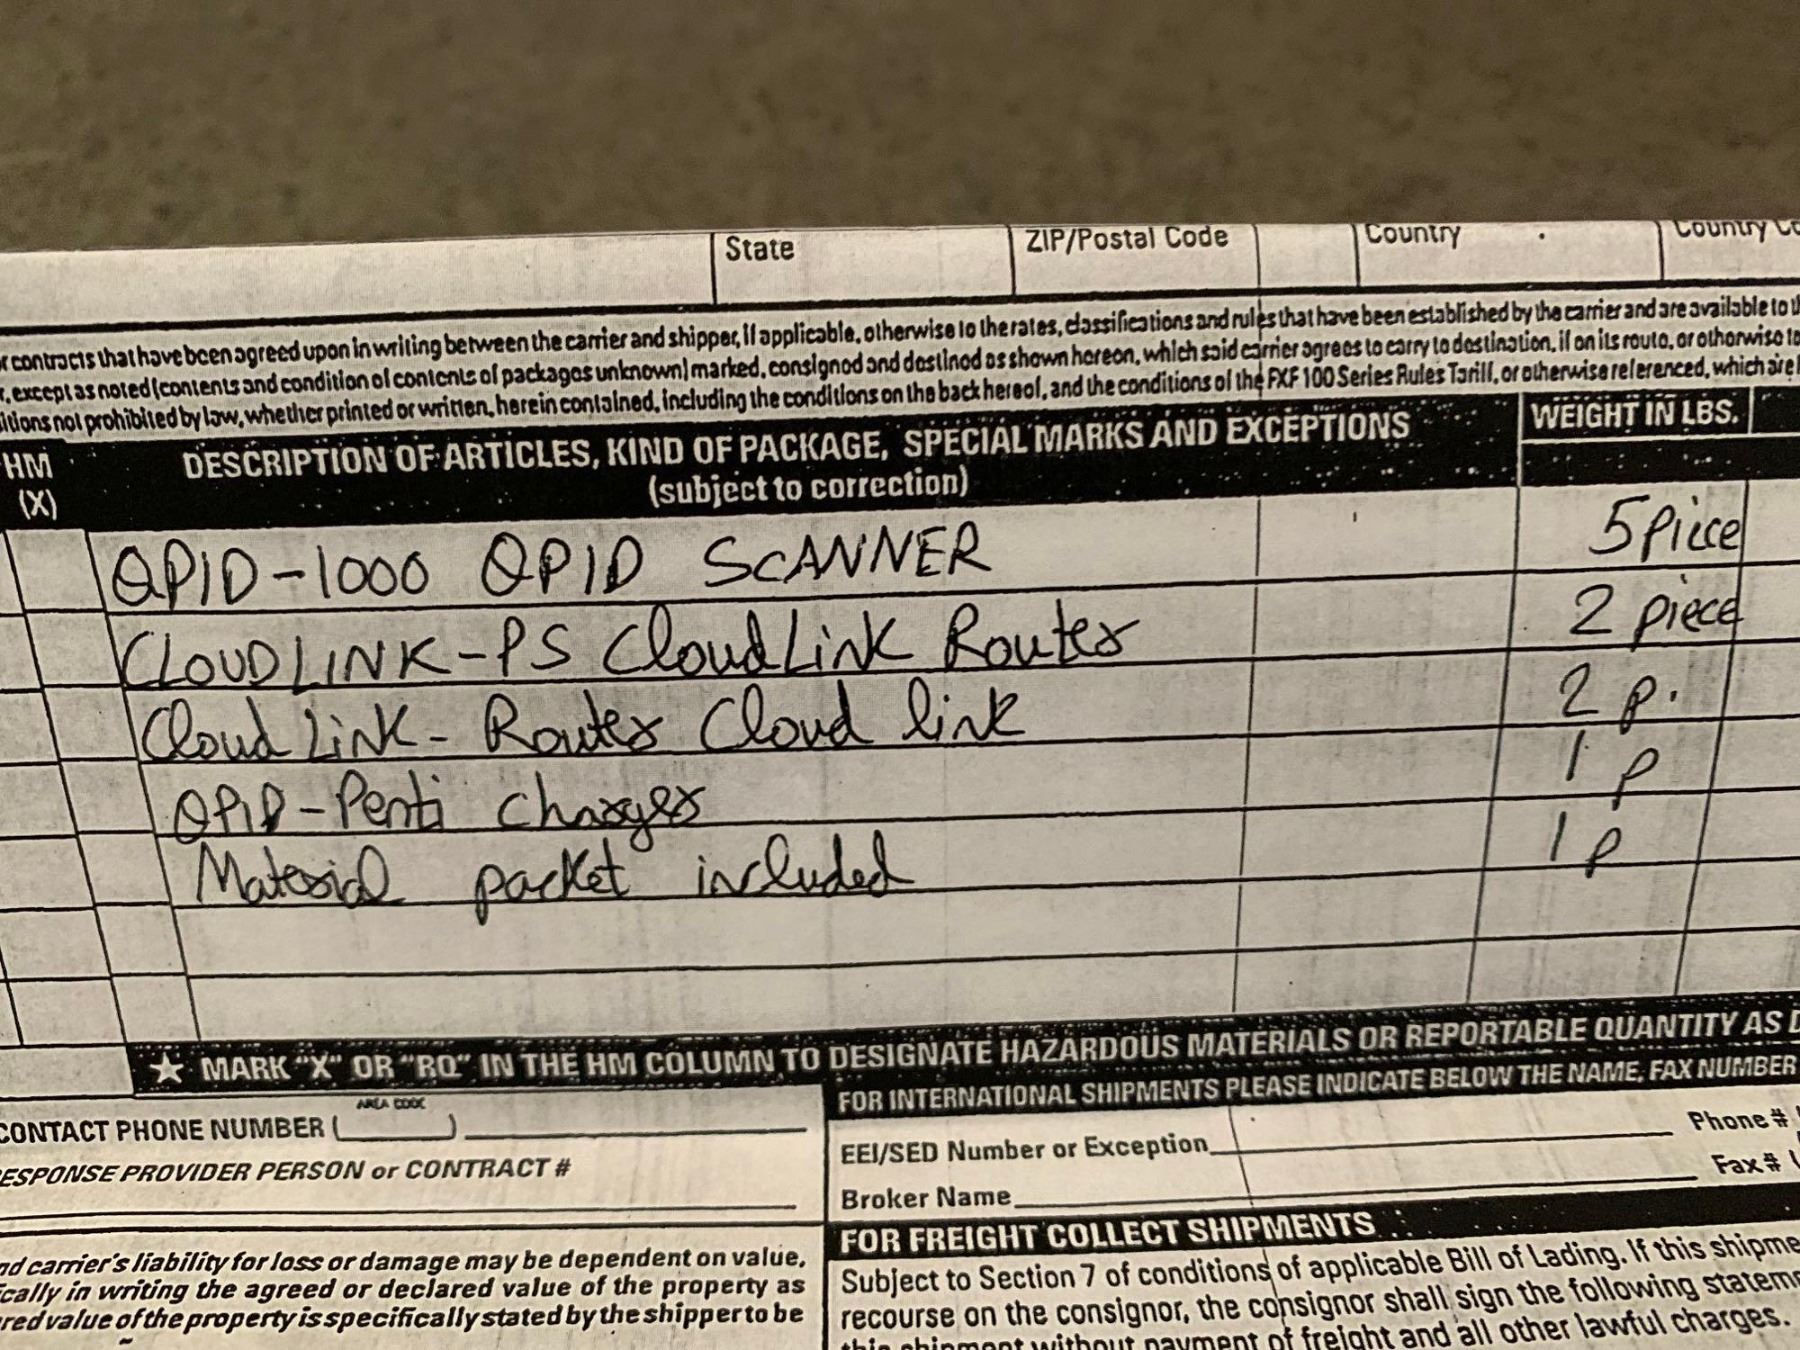 State ZIP/Postal Code Country Country Co
r contracts that have been agreed upon in writing between the carrier and shipper, if applicable, otherwise to the rates, classifications and rules that have been established by the carrier and are available to th
r, except as noted (contents and condition of contents of packages unknown) marked, consigned and destined as shown hereon, which said carrier agrees to carry to destination, if on its route, or otherwise to
itions not prohibited by law, whether printed or written, herein contained, including the conditions on the back hereof, and the conditions of the FXF 100 Series Rules Tariff, or otherwise referenced, which are h
HM (X) DESCRIPTION OF ARTICLES, KIND OF PACKAGE, SPECIAL MARKS AND EXCEPTIONS WEIGHT IN LBS.
(subject to correction)
QPID-1000 QPID SCANNER 5 Piece
CLOUDLINK-PS CloudLink Router 2 piece
CloudLink- Router Cloud link 2 p.
QPID-Penti charger 1 p
Material packet included 1 p
★ MARK "X" OR "RQ" IN THE HM COLUMN TO DESIGNATE HAZARDOUS MATERIALS OR REPORTABLE QUANTITY AS D
FOR INTERNATIONAL SHIPMENTS PLEASE INDICATE BELOW THE NAME, FAX NUMBER
AREA CODE
CONTACT PHONE NUMBER ( )
EEI/SED Number or Exception Phone #
RESPONSE PROVIDER PERSON or CONTRACT #
Broker Name Fax # (
FOR FREIGHT COLLECT SHIPMENTS
nd carrier's liability for loss or damage may be dependent on value,
ically in writing the agreed or declared value of the property as
red value of the property is specifically stated by the shipper to be
Subject to Section 7 of conditions of applicable Bill of Lading. If this shipme
recourse on the consignor, the consignor shall sign the following stateme
this shipment without payment of freight and all other lawful charges.